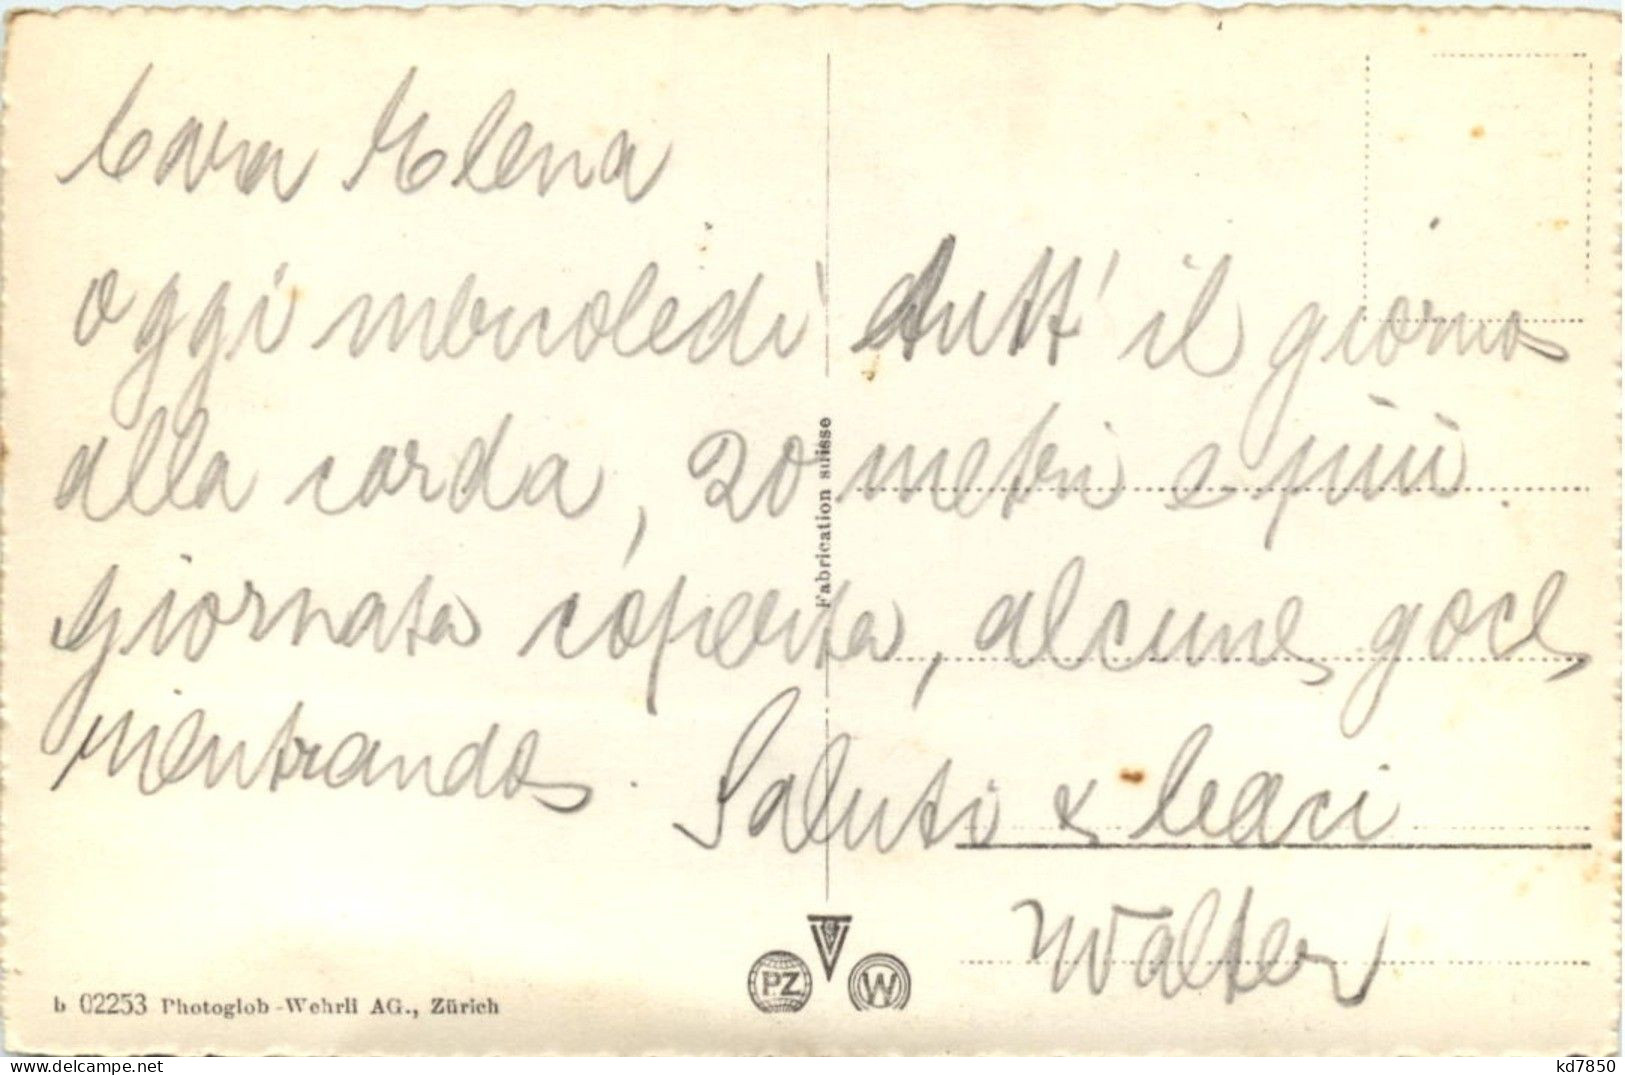 Cara Elena
oggi mercoledi tutt' il giorno
alla corda, 20 metri e più.
giornata coperta, alcune goce
rientrando. Saluti & baci
Walter
Fabrication suisse
PZ V W
b 02253 Photoglob-Wehrli AG., Zürich
delcampe.net
kd7850